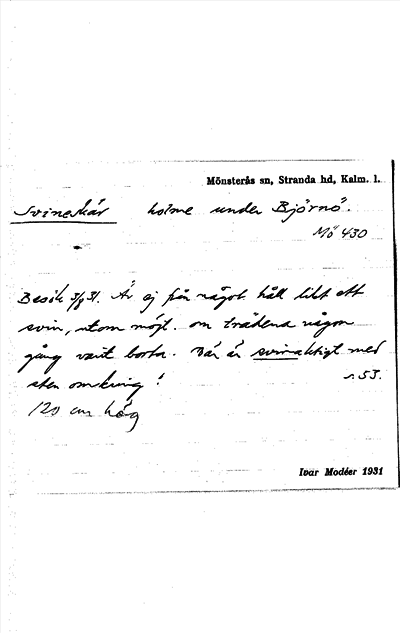 Mönsterås sn, Stranda hd, Kalm. l.
Svineskär holme under Björnö.
Mö 430
Besök 3/8 31. Är ej från något håll likt ett
svin, utom möjl. om träden a någon
gång varit borta. Där är svinaktigt med
sten omkring! s. 53.
120 cm hög
Ivar Modéer 1931